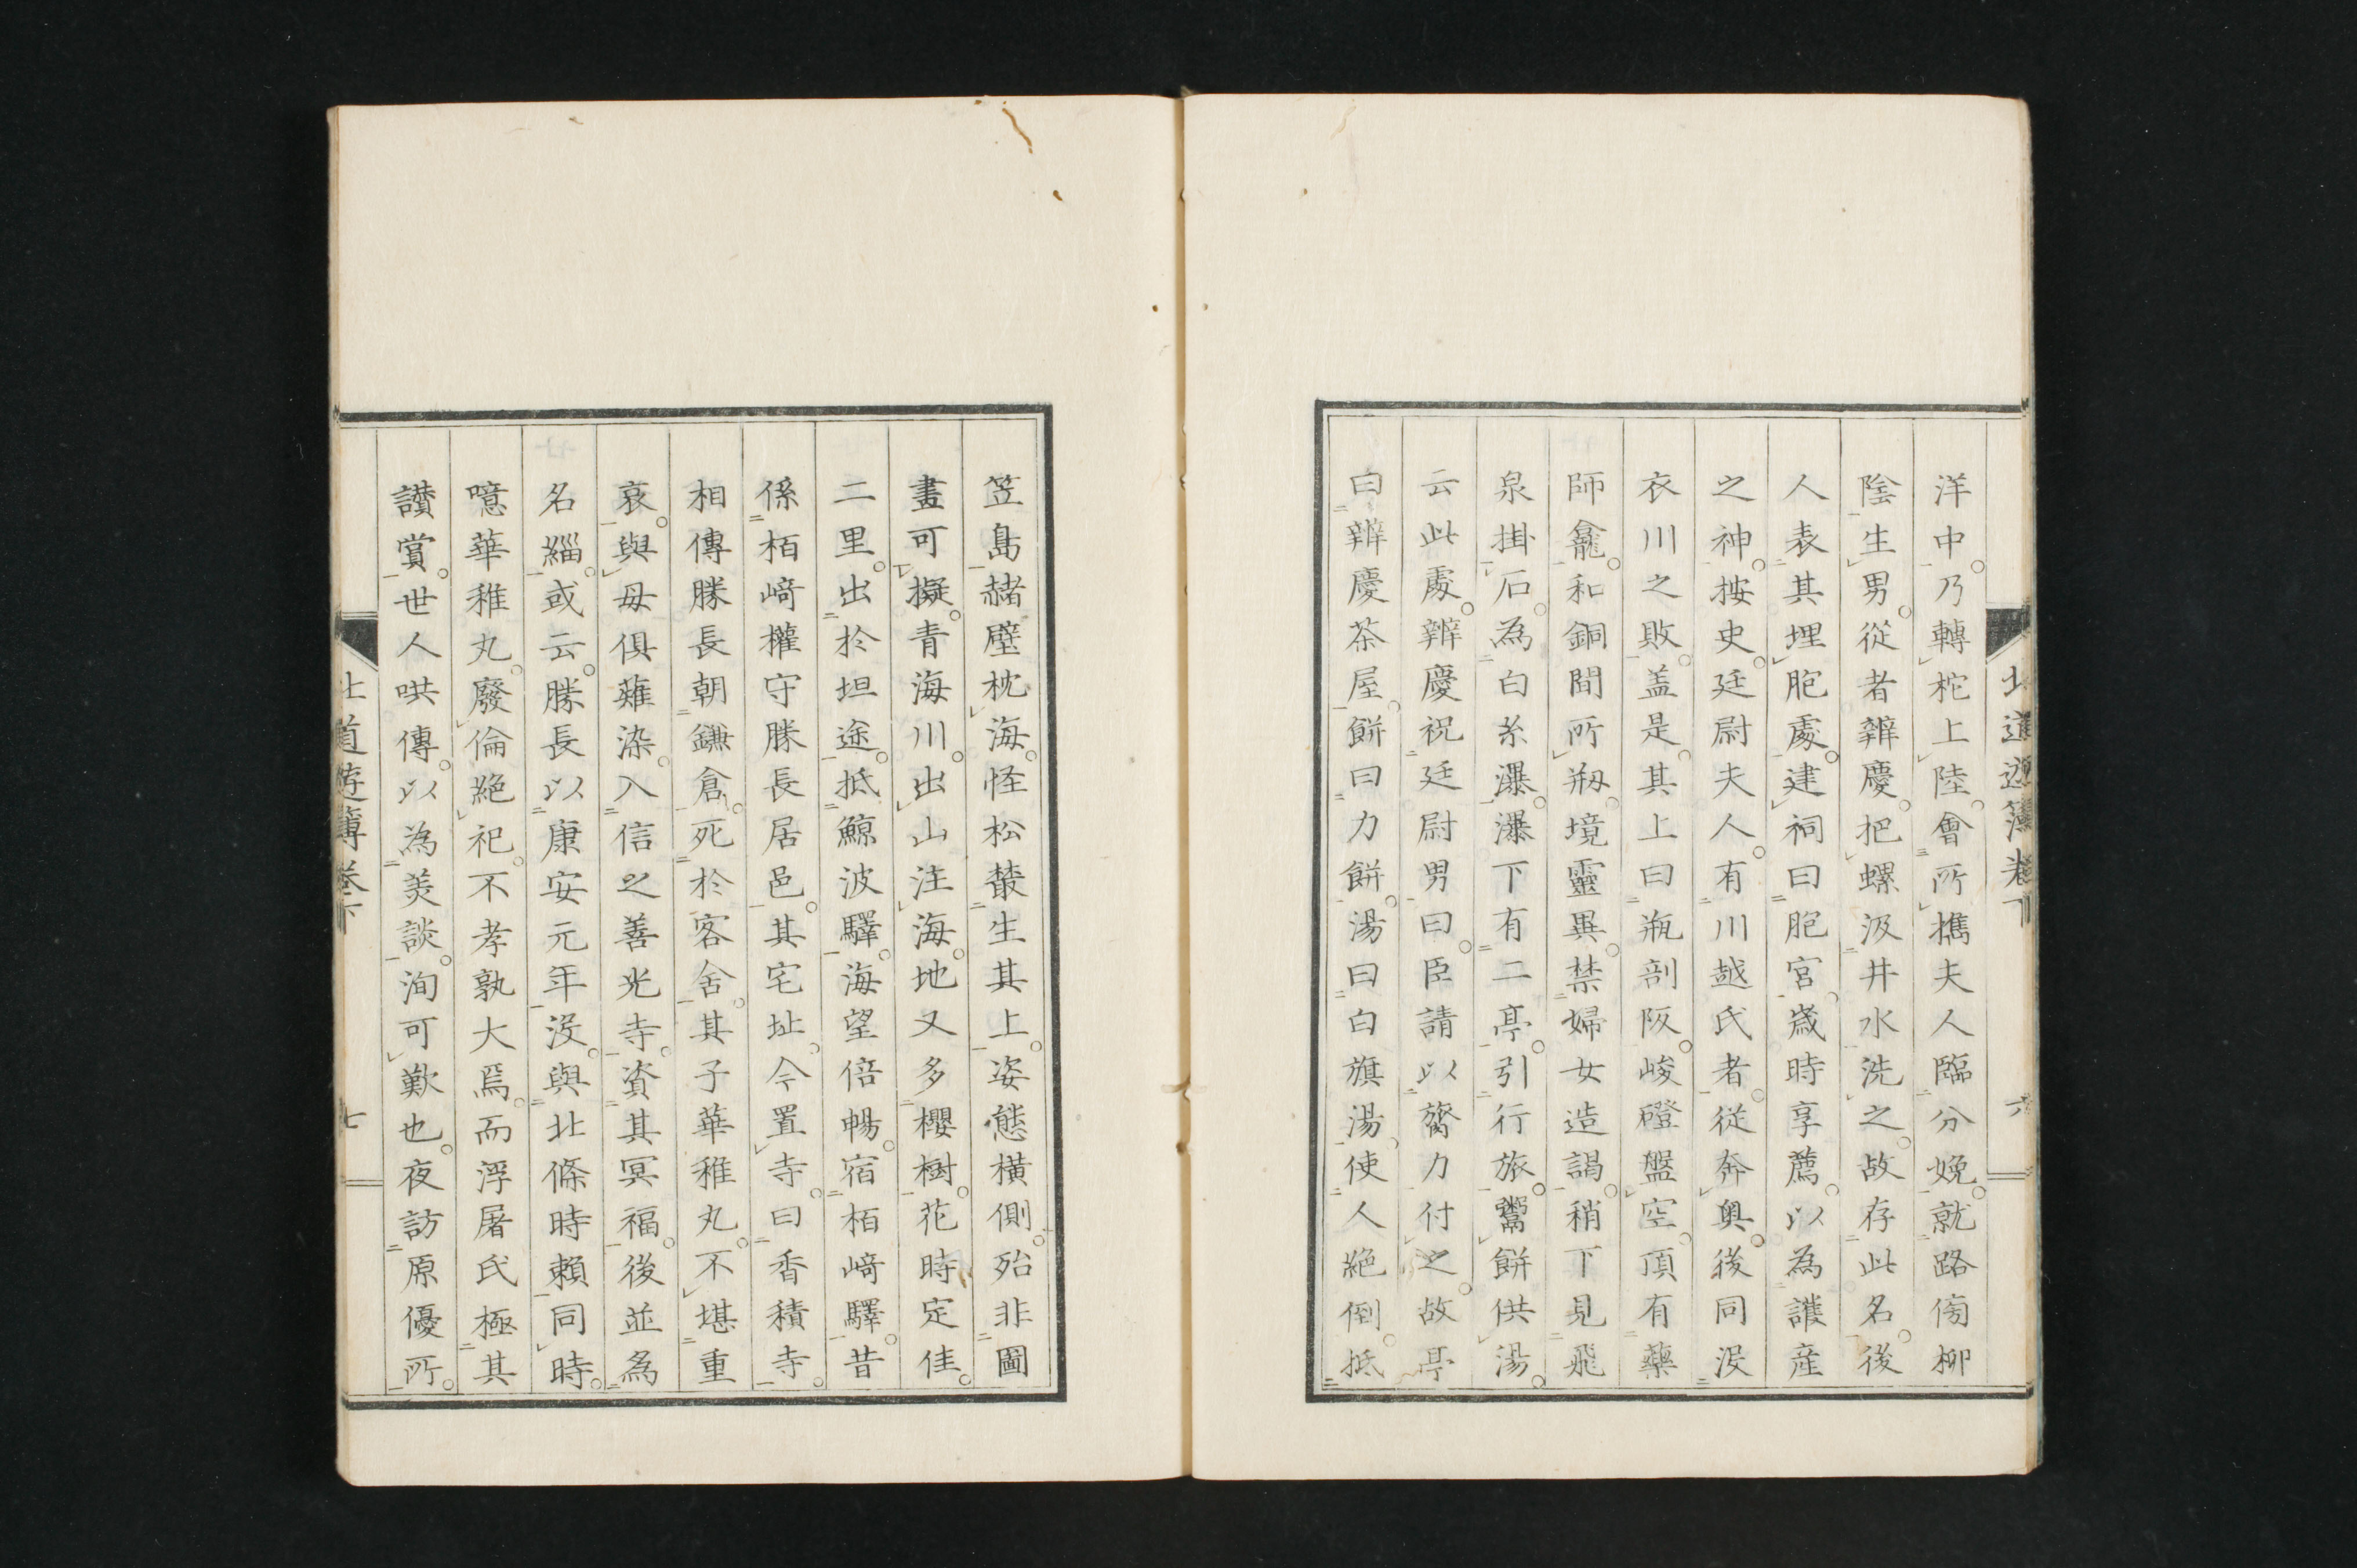 洋中乃轉柁上陸會所攜夫人臨分娩就路傍柳
陰生男從者辨慶把螺汲井水洗之故存此名後
人表其埋胞處建祠曰胞宮歲時享薦以為護産
之神按史廷尉夫人有川越氏者從奔奥後同没
衣川之敗盖是其上曰瓶剖阪峻磴盤空頂有藥
師龕和銅間所剏境靈異禁婦女造謁稍下見飛
泉掛石為白糸瀑瀑下有二亭引行旅鬻餅供湯
云此處辨慶祝廷尉男曰臣請以膂力付之故亭
曰辨慶茶屋餅曰力餅湯曰白旗湯使人絶倒抵
笠島赭壁枕海怪松藂生其上姿態横側殆非圖
畫可擬青海川出山注海地又多櫻樹花時定佳
二里出於坦途抵鯨波驛海望倍暢宿栢﨑驛昔
係栢﨑權守勝長居邑其宅址今置寺曰香積寺
相傳勝長朝鎌倉死於客舍其子華稚丸不堪重
哀與母俱薙染入信之善光寺資其冥福後並為
名緇或云勝長以康安元年没與北條時頼同時
噫華稚丸廢倫絶祀不孝孰大焉而浮屠氏極其
讃賞世人哄傳以為美談洵可歎也夜訪原優所
北道遊簿卷下
七